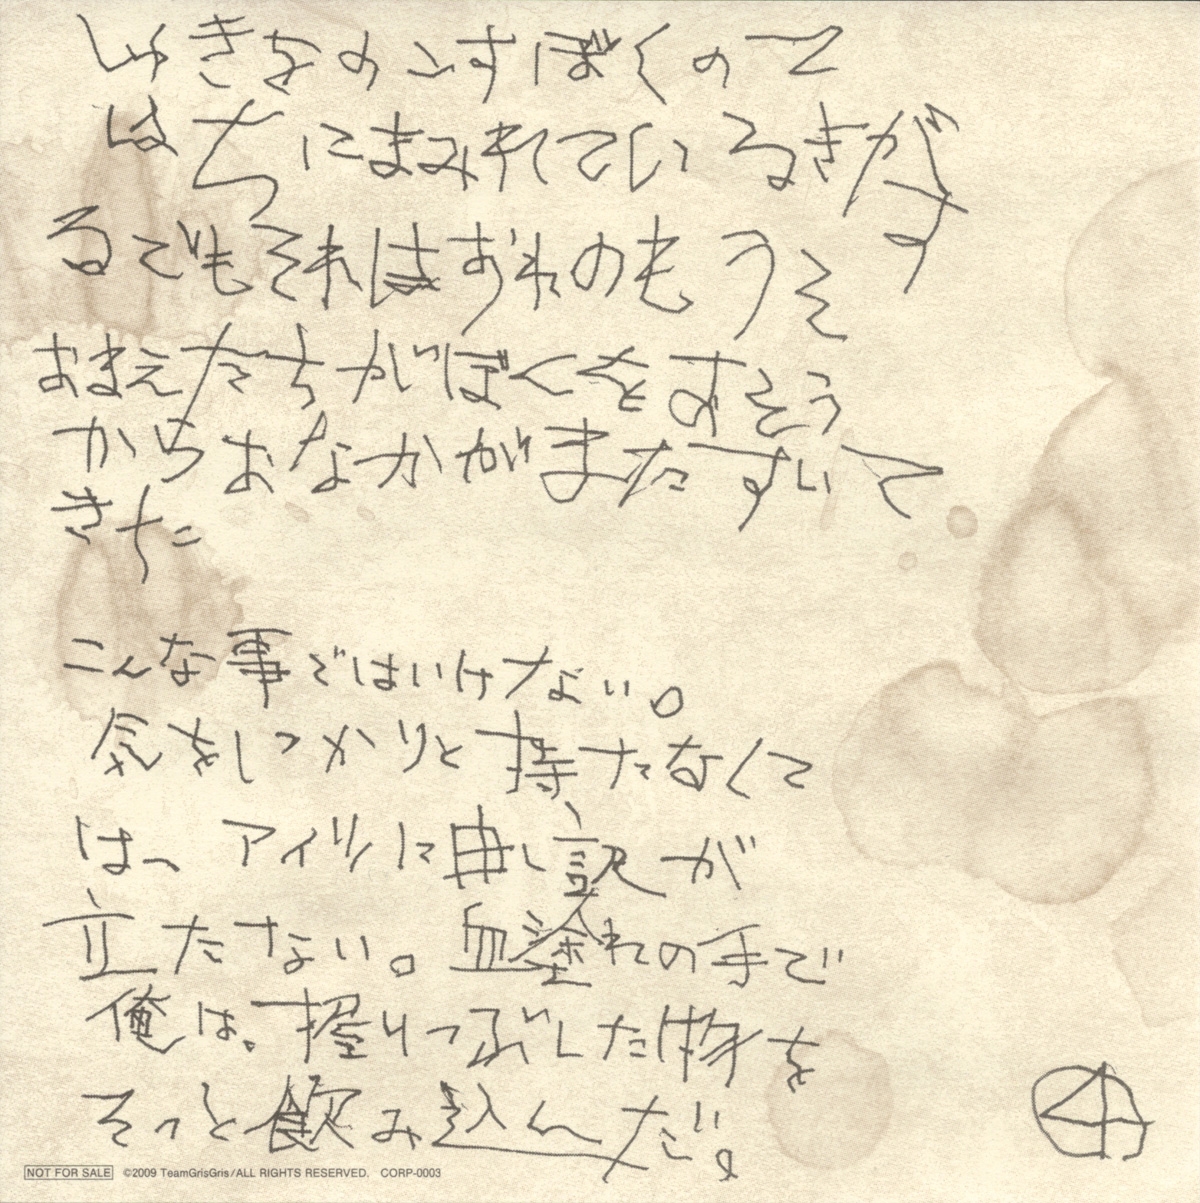 しゅきをのこすぼくのて
はちにまみれているきがす
るでもそれはおれのもうそ
おまえたちがぼくをおそう
からおなかがまたすいて
きた
こんな事ではいけない。
気をしっかりと持たなくて
は、アイツに申し訳が
立たない。血塗れの手で
俺は、握りつぶした物を
そっと飲み込んだ。
④
NOT FOR SALE ©2009 TeamGrisGris/ALL RIGHTS RESERVED. CORP-0003